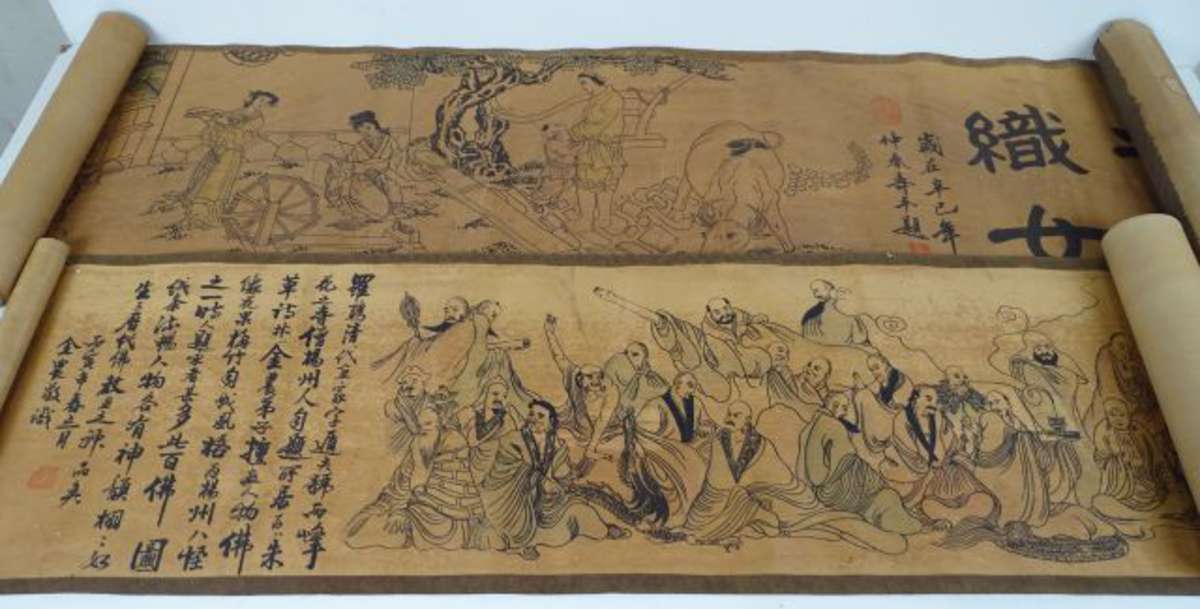 織女
歲在辛巳年
仲春壽平題
羅聘清代畫家字遁夫號兩峰
花之寺僧揚州人自題所居為朱
草詩林金農弟子擅畫人物佛
像花果梅竹自成風格為揚州八怪
之一時人題者甚多此百佛圖
線条流暢人物各有神韻栩々如
生 代佛教之神品矣
丙寅年春三月
金農敬識